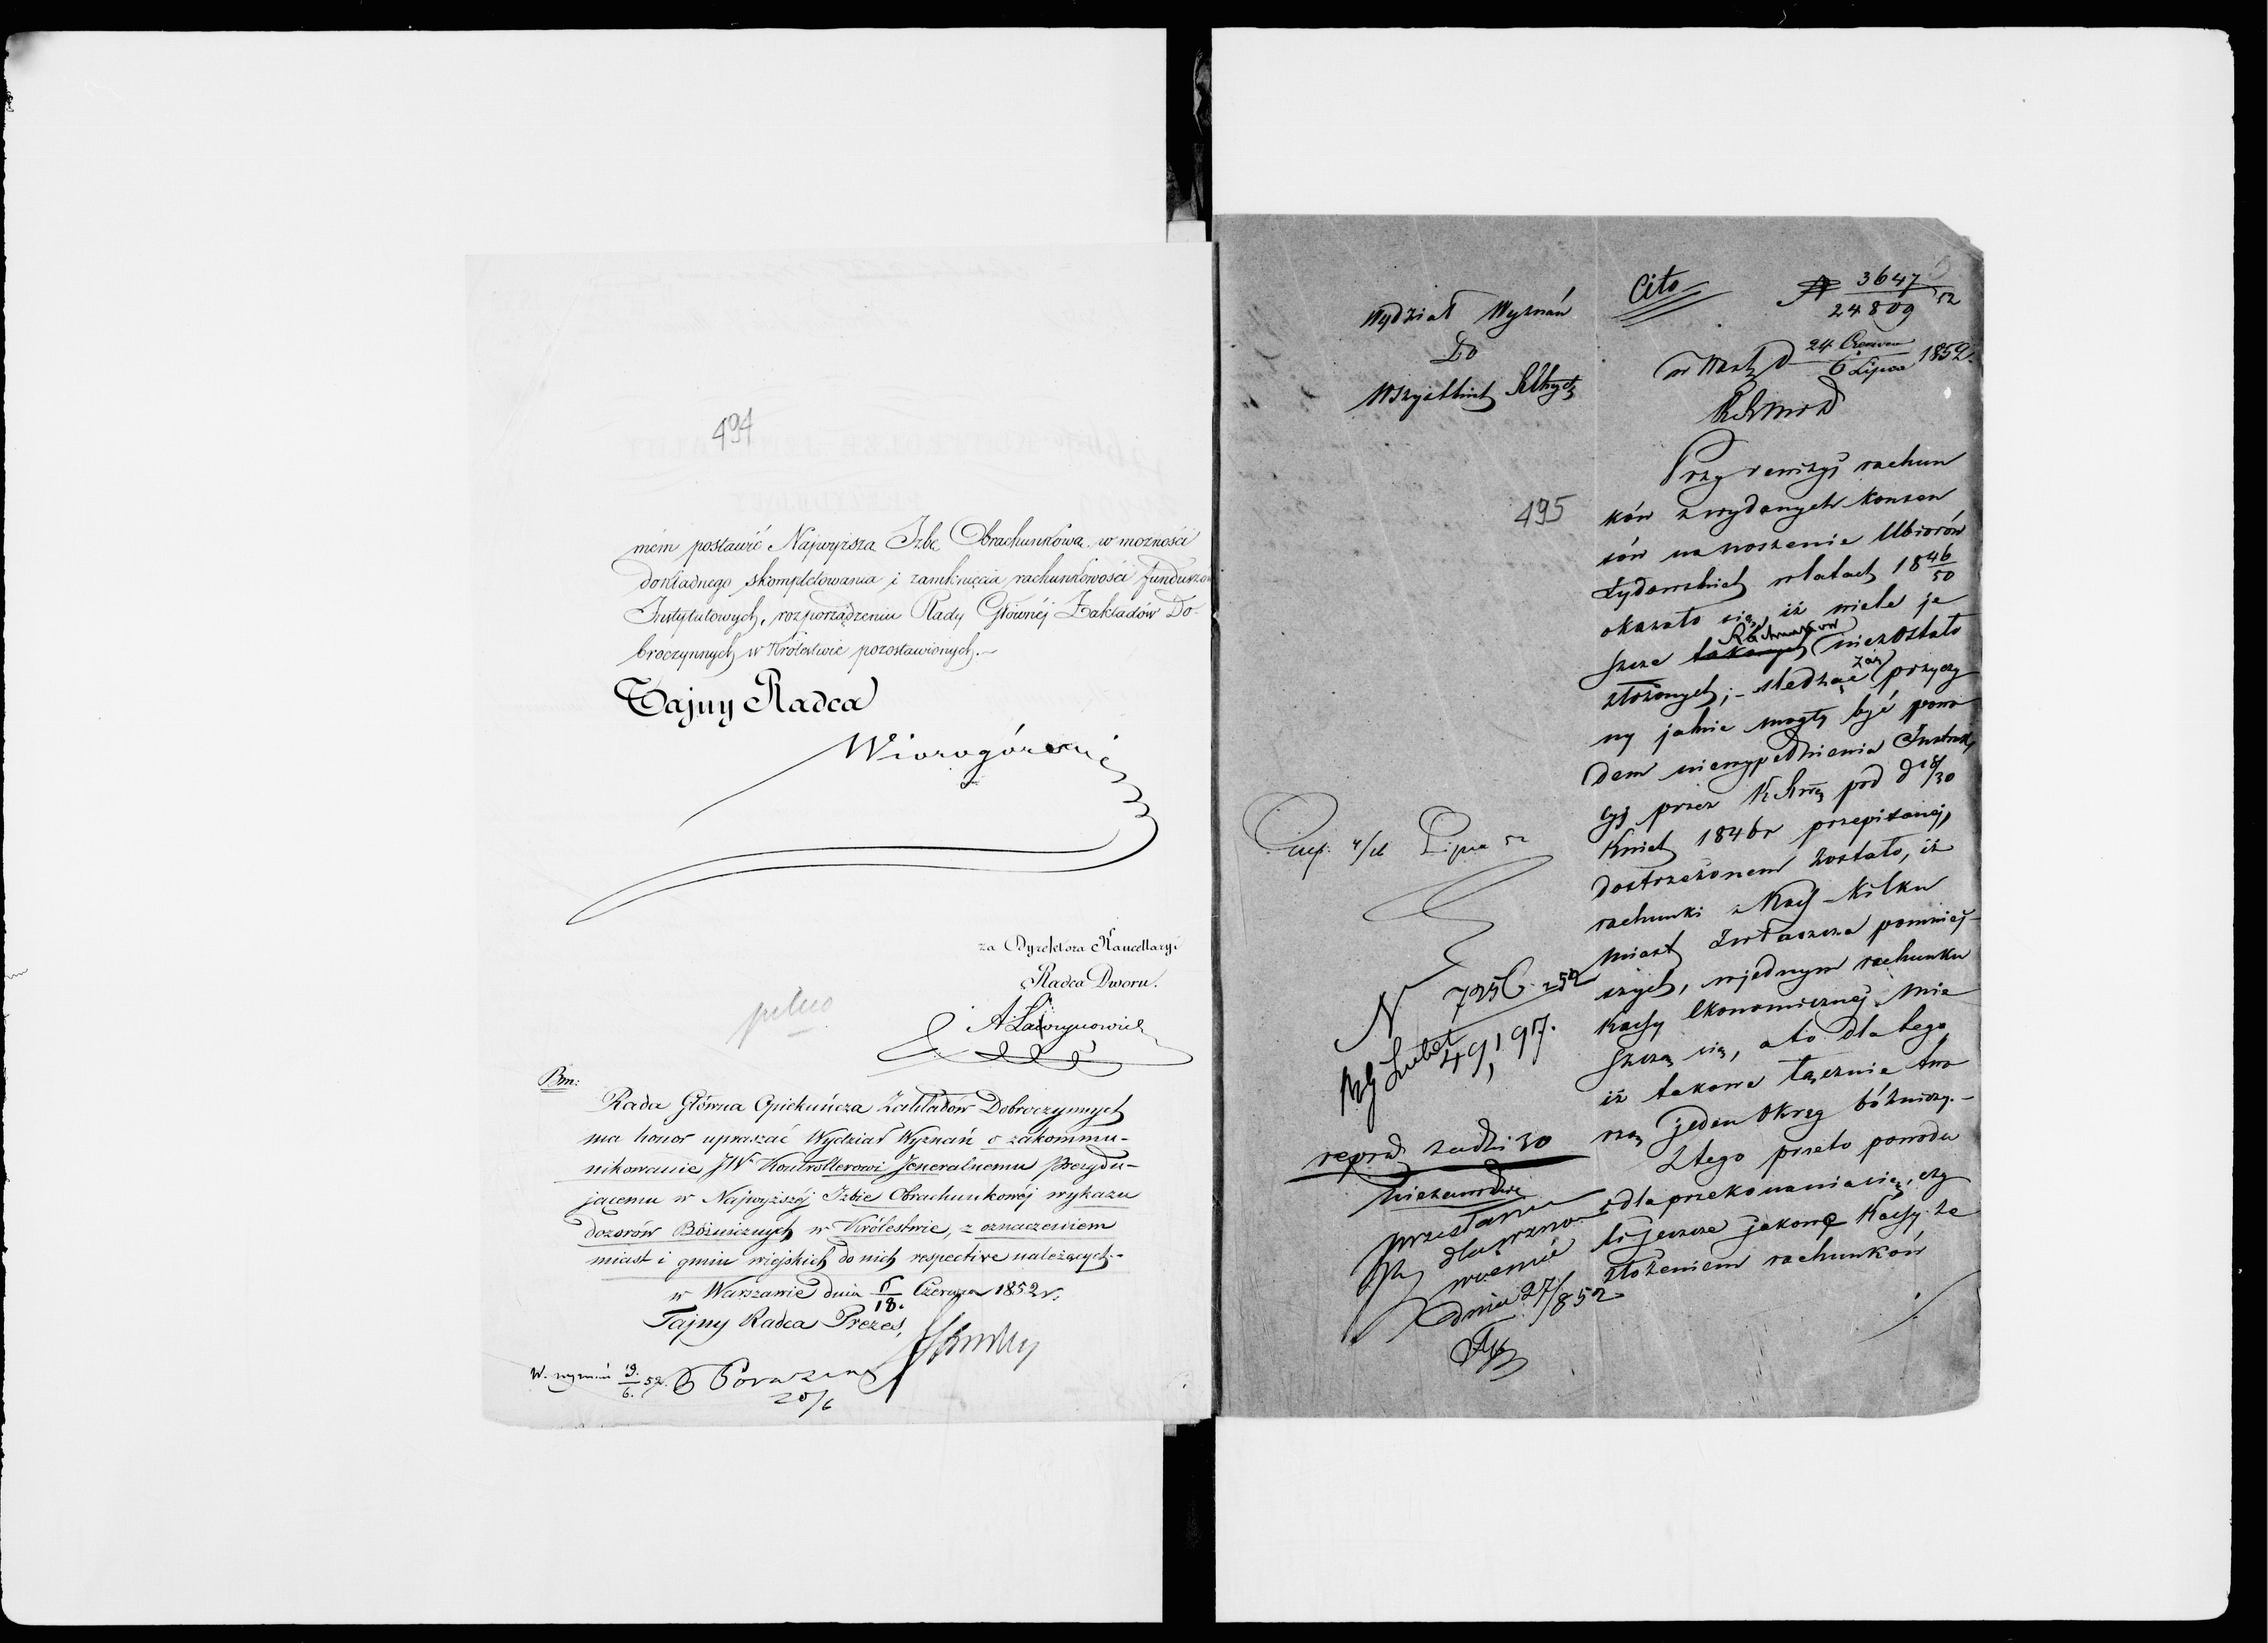 494
mém postawić Najwyższą Izbę Obrachunkową w możności
dokładnego skompletowania i zamknięcia rachunkowości funduszów
Instytutowych, rozporządzeniu Rady Głównéj Zakładów Do-
broczynnych w Królestwie pozostawionych.-
Tajny Radca
za Dyrektora Kancellaryi
Radca Dworu.
pilno
Bm:
Rada Główna Opiekuńcza Zakładów Dobroczynnych
ma honor upraszać Wydział Wyznań o zakommu-
nikowanie JW Kontrollerowi Jeneralnemu Prezydu-
jącemu w Najwyższéj Izbie Obrachunkowéj wykazu
dozorów Bóżniczych w Królestwie, z oznaczeniem
miast i gmin wiejskich do nich respective należących.-
w Warszawie dnia 6/18. Czerwca 1852 r.
Tajny Radca Prezes,
W. wyznań 19./6. 52.
20/6
Wydział Wyznań
Do
Wszystkich
Cito
N 3647/24809 52
24 Czerwca/6 Lipca 1852.
495
Przy rewizyi rachun
ków z wydanych konsen
sów na noszenie Ubiorów
Żydowskich w latach 1846/50
okazało się, iż wiele je
szcze takowych Rachunków niezostało
złożonych; - śledząc zaś przyczy
ny jakie mogły być powo
dem niewypełnienia Instruk
cyi przez pod d 18/30
Kwiet 1846 r przepisanéj,
dostrzeżonem zostało, iż
rachunki z Kass kilku
miast zwłaszcza pomniej-
szych, w jednym rachunku
Kassy Ekonomicznej mie
szczą się, a to dla tego
iż takowe łącznie two
rzą jeden Okręg bóżniczy.-
Z tego przeto powodu
i dla przekonania się, czy
i jeszcze jakowe Kassy ze
złożeniem rachunków
Lipca 52
N 725
49,197.
przesłane
dnia 27/8 52